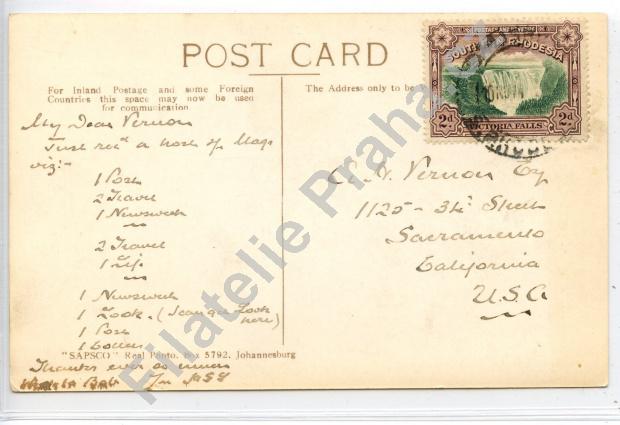 POST CARD
For Inland Postage and some Foreign
Countries this space may now be used
for communication.
The Address only to be
POSTAGE AND REVENUE
SOUTHERN RHODESIA
2d VICTORIA FALLS 2d
My Dear Vernon
Just rec'd a host of Mags
viz:-
1 Post
2 Travel
1 Newsweek
2 Travel
1 Life
1 Newsweek
1 Look. (
here)
1 Post
1 Colliers
Thanks ever so much
Bob
C. V. Vernon Esq
1125 - 34 Street
Sacramento
California
U.S.A
"SAPSCO" Real Photo, Box 5792, Johannesburg
Filatelie Praha.cz